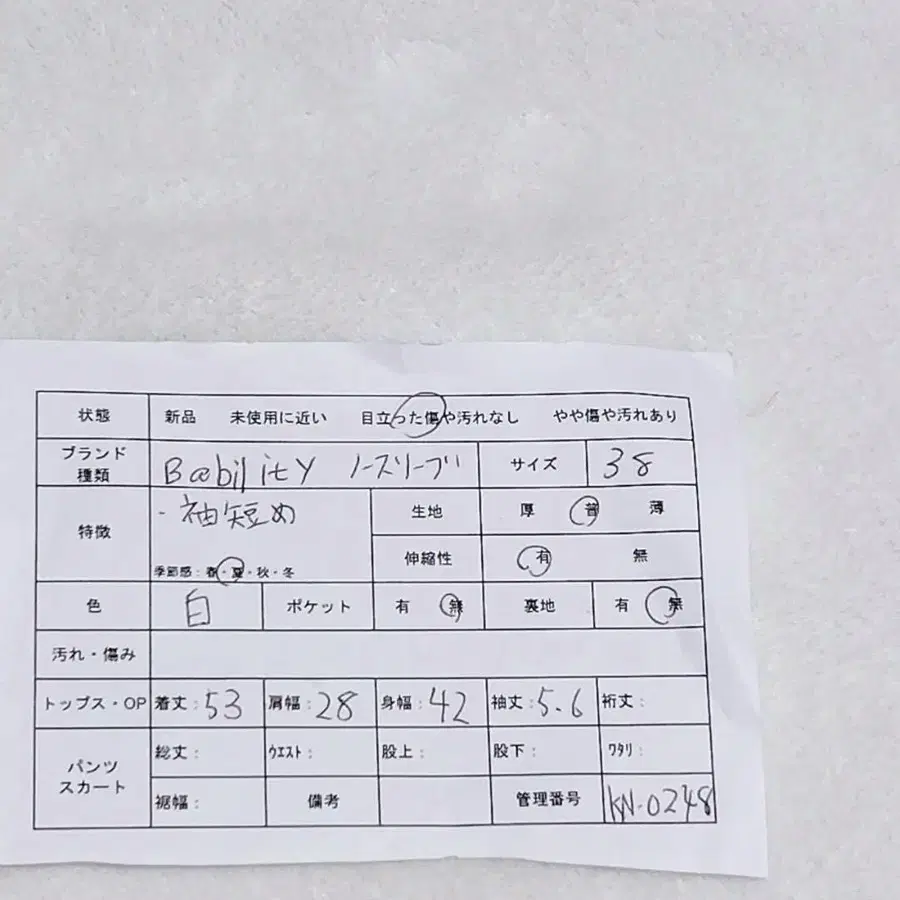 状態 新品 未使用に近い 目立った傷や汚れなし やや傷や汚れあり
ブランド 種類 B@bility ノースリーブ サイズ 38
特徴 ・袖短め 生地 厚 普 薄
季節感：春・夏・秋・冬 伸縮性 有 無
色 白 ポケット 有 無 裏地 有 無
汚れ・傷み
トップス・OP 着丈：53 肩幅：28 身幅：42 袖丈：5.6 裄丈：
パンツ スカート 総丈： ウエスト： 股上： 股下： ワタリ：
裾幅： 備考 管理番号 KN-0248